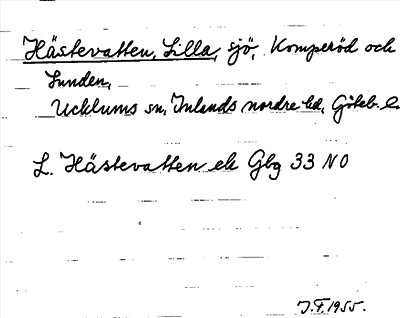 Hästevatten, Lilla, sjö, Komperöd och
Sunden,
Ucklums sn, Inlands nordre hd, Göteb. l.
L. Hästevatten ek Gbg 33 NO
J.F. 1955.